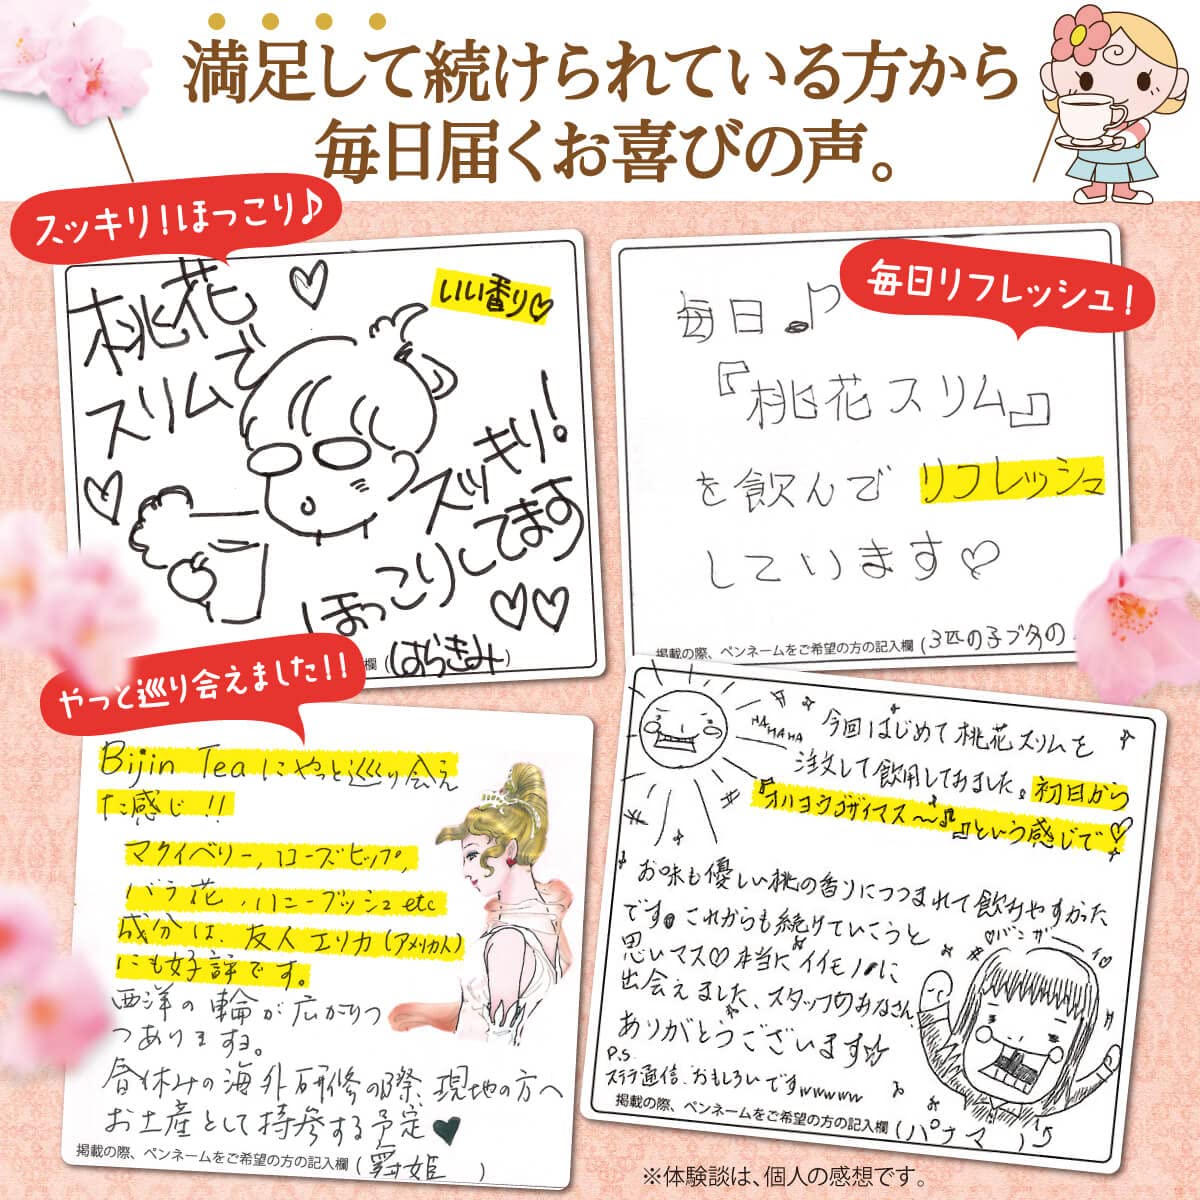 満足して続けられている方から
毎日届くお喜びの声。
スッキリ!ほっこり♪
桃花で
スリム
いい香り♡
スッキリ!
ほっこりしてます
欄 (はらきみ)
毎日リフレッシュ!
毎日♪
『桃花スリム』
を飲んで リフレッシュ
しています♡
掲載の際、ペンネームをご希望の方の記入欄 (3匹の子ブタの
やっと巡り会えました!!
Bijin Teaにやっと巡り会え
た感じ!!
マクイベリー,ローズヒップ,
バラ花,ハニーブッシュetc
成分は、友人エリカ(アメリカ人)
にも好評です。
西洋の輪が広がりつ
つあります。
春休みの海外研修の際、現地の方へ
お土産として持参する予定♥
掲載の際、ペンネームをご希望の方の記入欄 (姫)
HAHAHA
今回はじめて桃花スリムを
注文して飲用してみました。初日から
『オハヨウゴザイマス〜♪』という感じで♡
お味も優しい桃の香りにつつまれて飲みやすかった
です。これからも続けていこうと
思いマス♡本当にイイモノに
出会えました、スタッフのみなさん、
ありがとうございます☆
P.S.
ステラ通信、おもしろいですwwwww
掲載の際、ペンネームをご希望の方の記入欄 (パナマ)
※体験談は、個人の感想です。